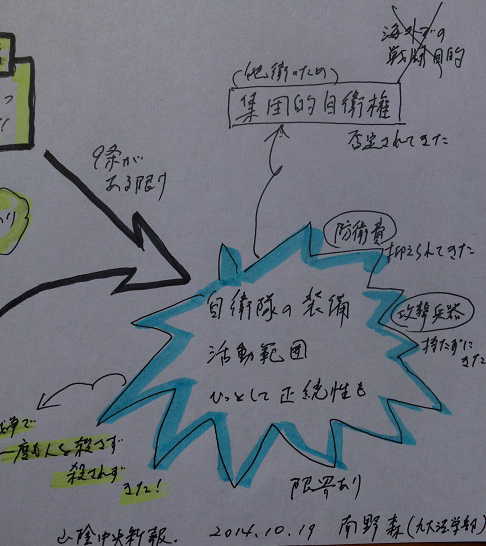 海外での
戦闘目的
(他衛のため)
集団的自衛権
否定されてきた
9条が
ある限り
防衛費
抑えられてきた
自衛隊の装備
活動範囲
ひっとして正統性も
攻撃兵器
持たずに
きた
一度も人を殺さず
殺されず
きた!
限界あり
山陰中央新報. 2014.10.19 南野森(九大法学部)